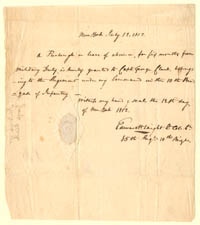 New York July 12. 1802.
A Furlough or leave of absence, for six months from
military duty is hereby granted to Capt. George Clark belong-
ing to the Regiment under my command in the 10th Bri-
gade of Infantry —
Witness my hand & seal the 12th day
of 1802.
Lt. Col. Ct.
10th Brigde